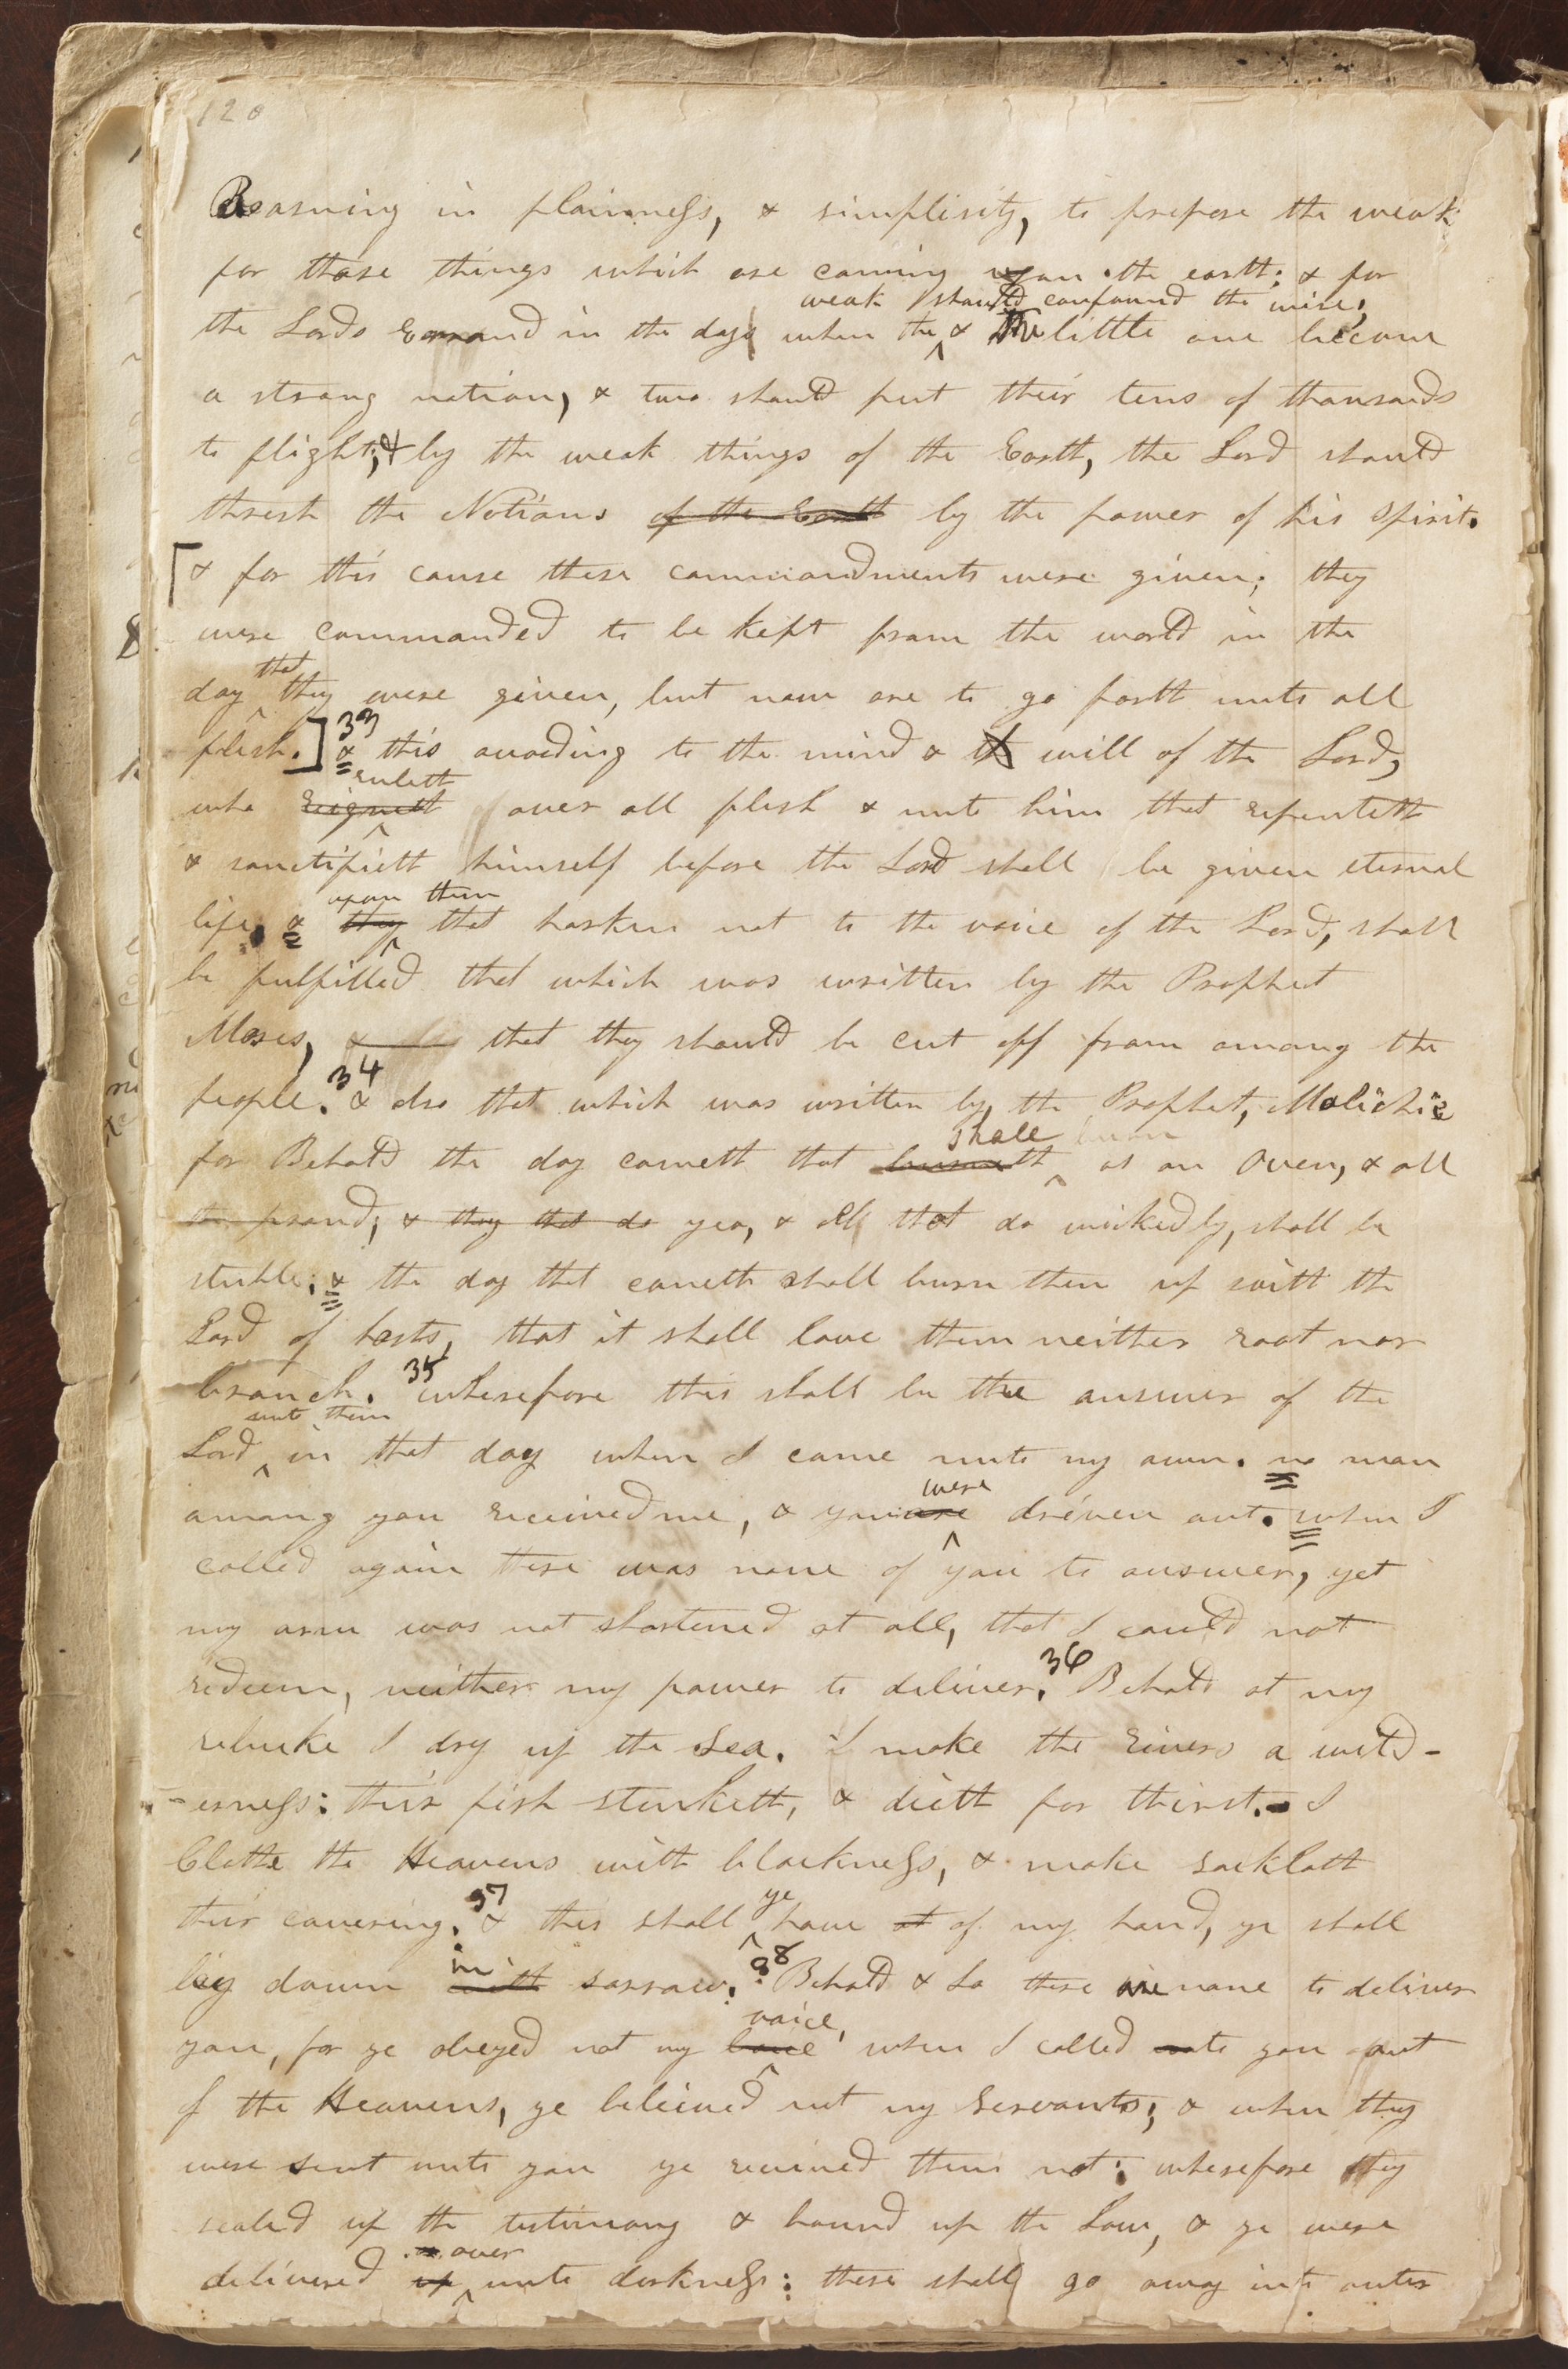 120
Reasoning in plainness, & simplisity, to prepare the weak
for those things which are coming upon the earth; & for
weak should confound the wise,
the Lords Errand in the day when the & the little one become
a strong nation, & two should put their tens of thousands
to flight; & by the weak things of the Earth, the Lord should
thresh the Nations of the Earth by the power of his spirit.
[& for this cause these commandments were given; they
were commanded to be kept from the world in the
that
day they were given, but now are to go forth unto all
33
flesh.] & this according to the mind & will of the Lord,
ruleth
who reigneth over all flesh & unto him that repenteth
& sanctifieth himself before the Lord shall be given eternal
upon them
life, & they that harken not to the voice of the Lord, shall
be fulfilled that which was written by the Prophet
Moses, & that they should be cut off from among the
34
people. & also that which was written by the Prophet, Malichie
shall burn
for Behold the day cometh that burneth as an Oven, & all
the proud, & they that do yea, & all that do wickedly, shall be
stubble; & the day that cometh shall burn them up saith the
Lord of hosts, that it shall leave them neither root nor
35
branch. wherefore this shall be the answer of the
unto them
Lord in that day when I came unto my own. no man
were
among you received me, & you are driven out. when I
called again there was none of you to answer, yet
my arm was not shortened at all, that I could not
36
redeem, neither my power to deliver. Behold at my
rebuke I dry up the Sea. I make the rivers a wild-
-erness: their fish stinketh, & dieth for thirst. I
Clothe the Heavens with blackness, & make sackloth
37 ye
their covering. & this shall have at of my hand, ye shall
in 38
lay down with sorrow. Behold & Lo there are none to deliver
voice,
you, for ye obeyed not my love when I called unto you out
of the Heavens, ye beleived not my Servants; & when they
were sent unto you ye received them not; wherefore they
sealed up the testimony & bound up the Law, & ye were
over
delivered up unto darkness: these shall go away into outer